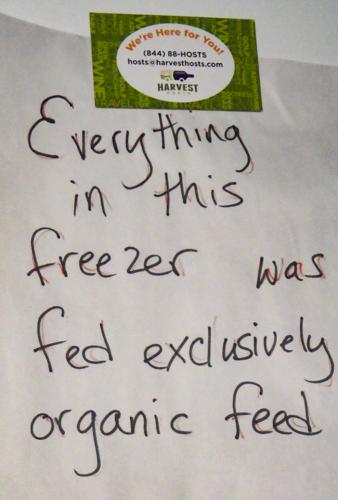 We're Here for You!
(844) 88-HOSTS
hosts@harvesthosts.com
HARVEST
HOSTS
Everything
in this
freezer was
fed exclusively
organic feed